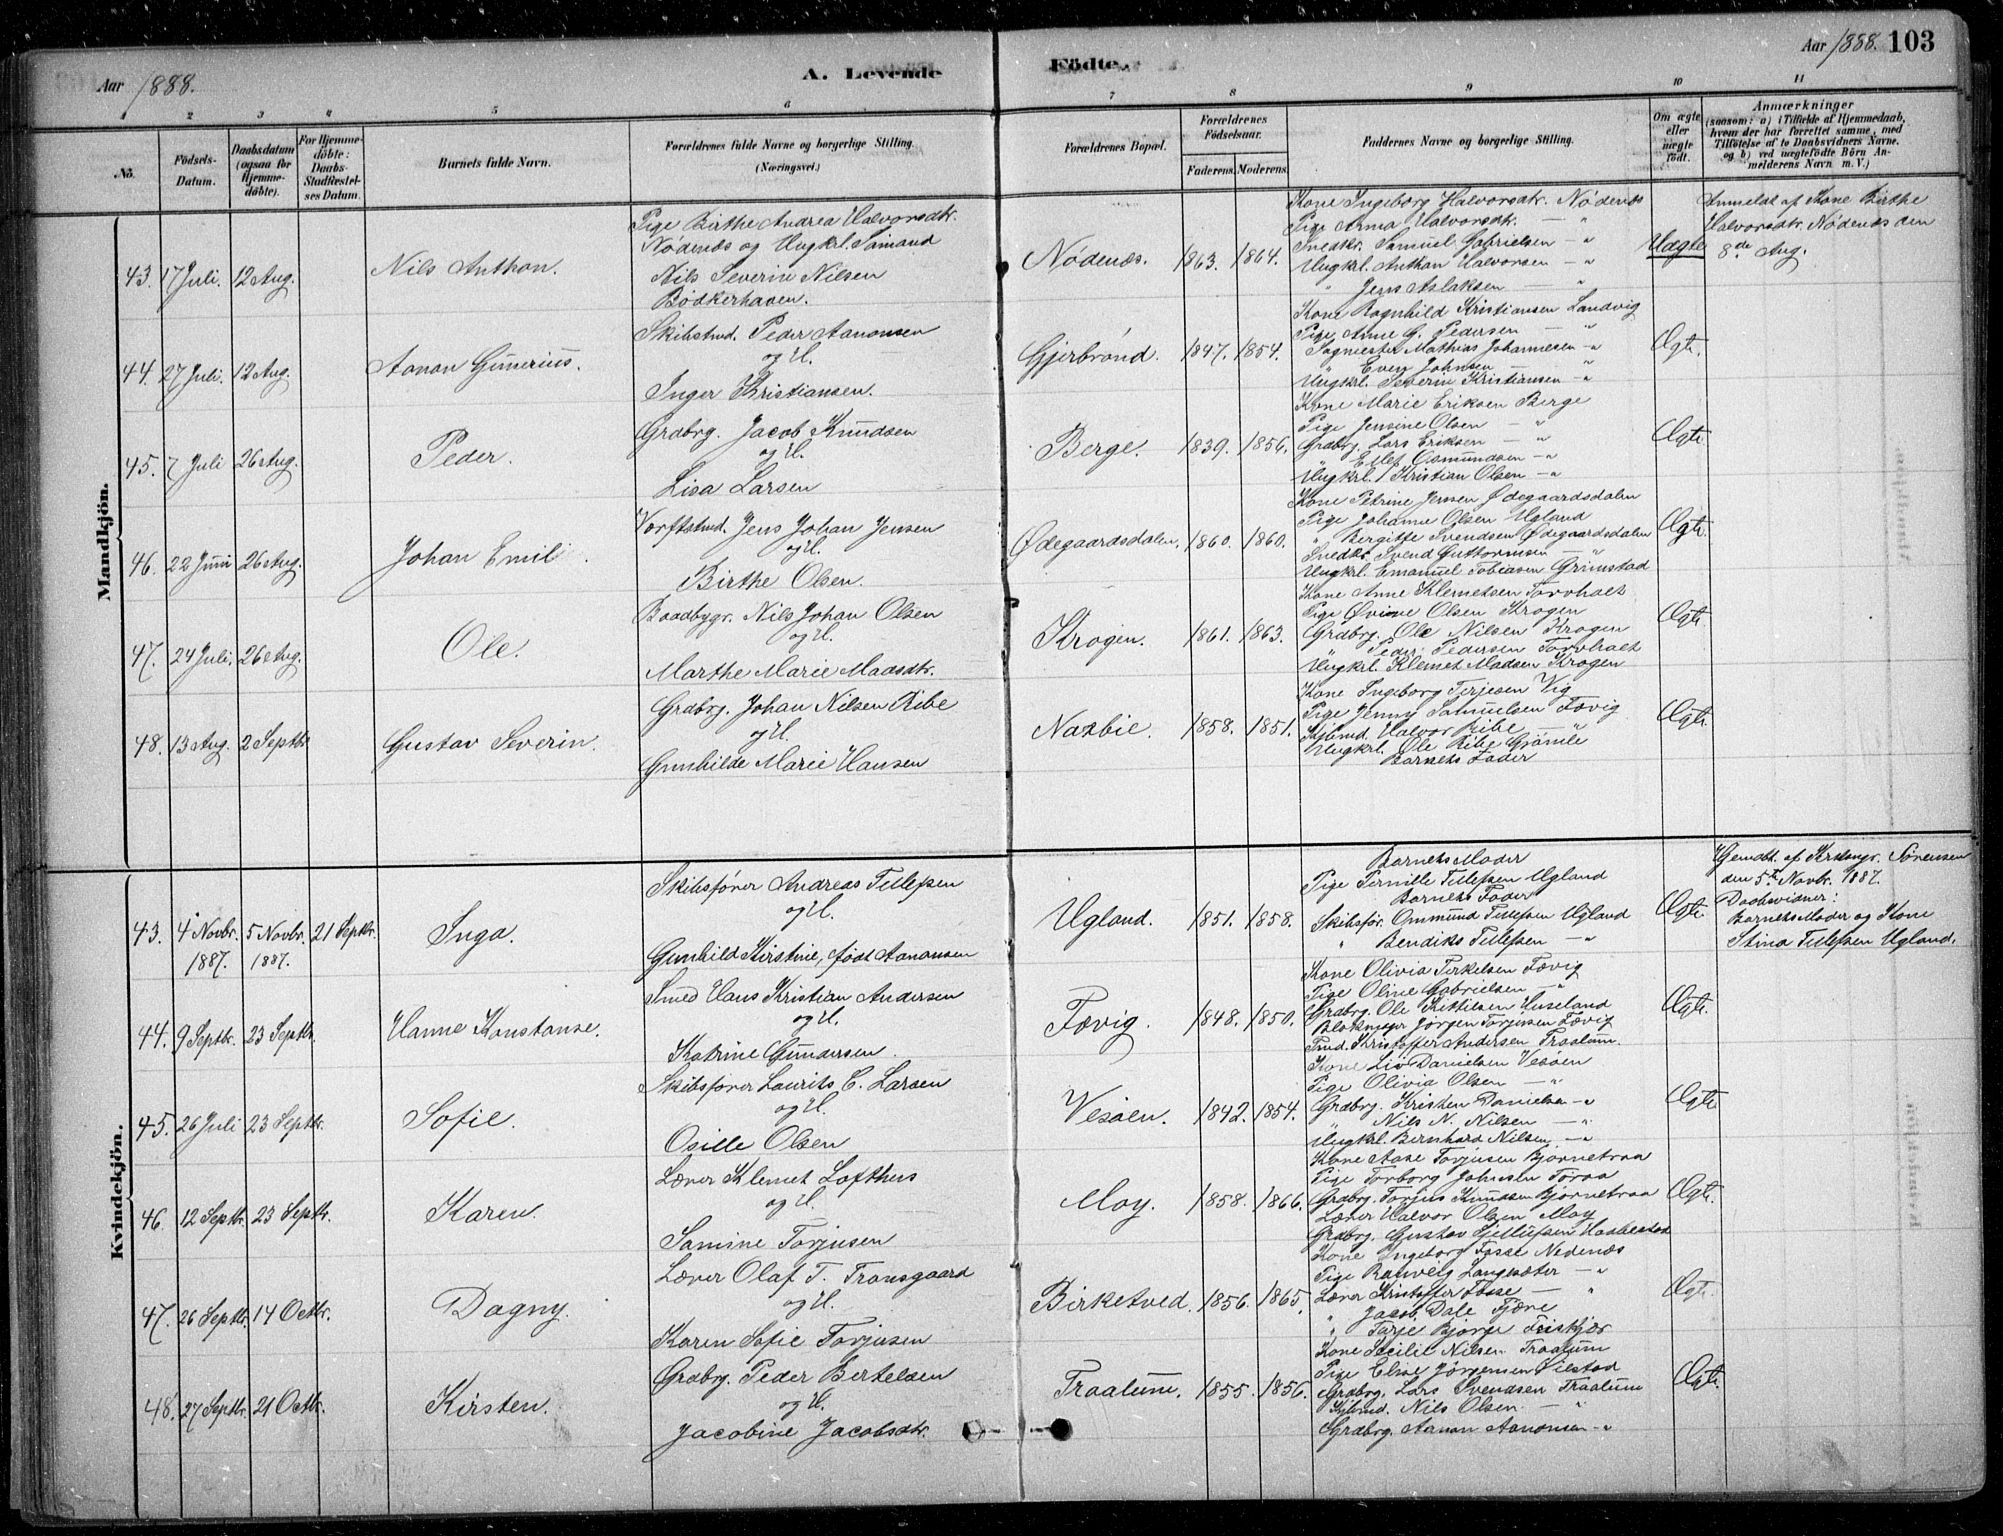 Aar 1888.
A. Levende
Födte.
Aar 1888. 103
1 2 3 4 5 6 7 8 9 10 11
No.
Födsels-Datum.
Daabsdatum (ogsaa for Hjemme-döbte).
For Hjemme-döbte: Daabs-Stadfæstel-ses Datum.
Barnets fulde Navn.
Forældrenes fulde Navne og borgerlige Stilling. (Næringsvei.)
Forældrenes Bopæl.
Forældrenes Födselsaar.
Faderens. Moderens.
Faddernes Navne og borgerlige Stilling.
Om ægte eller uægte födt.
Anmærkninger
(saasom: a) i Tilfælde af Hjemmedaab, hvem der har forrettet samme, med Tilföielse af to Daabsvidners Navne. og b) ved uægtefödte Börn An-melderens Navn m. V.)
Mandkjön.
43. 17 Juli. 12 Aug.
Nils Anthon.
Pige Birthe Andrea Halvorsdtr.
Nødenæs og Ungkrl. Saimand
Nils Severin Nilsen
Bödkerhaven.
Nødenæs. 1863. 1864.
Kone Ingeborg Halvorsdtr. Nødenæs
Pige Anna Halvorsdtr. — "
Snedkr. Samuel Gabrielsen — "
Ungkrl. Anthon Halvorsen — "
" Jens Aslaksen — "
Uægte
Anmeldt af Kone Birthe
Halvorsdtr. Nødenæs den
8de Aug.
44. 27 Juli. 12 Aug.
Aanon Gunerius.
Skibstmd. Peder Aanonsen
og H.
Inger Kristiansen.
Gjerbrønd. 1847. 1854.
Kone Ragnhild Kristiansen Landvig
Pige Anne G. Pedersen — "
Sagmester Mathias Johannesen — "
" Even Johnsen — "
Ungkrl. Severin Kristiansen — "
Ægte.
45. 7 Juli 26 Aug.
Peder.
Grdbrg. Jacob Knudsen
og H.
Lisa Larsen
Berge. 1839. 1856.
Kone Marie Eriksen Berge
Pige Jensine Olsen — "
Grdbrg. Lars Eriksen — "
" Ellef Osmundsen — "
Ungkrl. Kristian Olsen — "
Ægte
46. 22 Juni 26 Aug.
Johan Emil.
Værftstmd. Jens Johan Jensen
og H.
Birthe Olsen.
Ødegaardsdalen. 1860. 1860.
Kone Petrine Jensen Ødegaardsdalen
Pige Johanne Olsen Ugland
" Bergitte Svendsen Ødegaardsdalen
Snedkr. Svend Guttormsen — "
Ungkrl. Emanuel Tobiasen Grimstad
Ægte
47. 24 Juli. 26 Aug.
Ole.
Baadbygr. Nils Johan Olsen
og H.
Marthe Marie Maasdtr.
Krogen. 1861. 1863.
Kone Anne Klemetsen Torvholt
Pige Øvine Olsen Krogen
Grdbrg. Ole Nilsen Krogen
" Peder Pedersen Torvholt
Ungkrl. Klemet Madsen Krogen
Ægte
48. 13 Aug. 2 Septbr
Gustav Severin.
Grdbrg. Johan Nilsen Ribe
og H.
Gunhilde Marie Hansen
Naxbie. 1858. 1851.
Kone Ingeborg Terjesen Vig
Pige Jenny Samuelsen Fævig
Skibmd. Halvor Ribe — "
Ungkrl. Ole Ribe Grömle
Barnets Fader
Ægte
Kvindekjön.
43. 4 Novbr. 1887. 5 Novbr. 1887. 21 Septbr.
Inga.
Skibsfører Andreas Tellefsen
og H.
Gunhild Kirstine, født Aanonsen
Ugland. 1851. 1858.
Barnets Moder
Pige Pernille Tellefsen Ugland
Barnets Fader
Skibsfør. Ommund Tellefsen Ugland
" Bendiks Tellefsen — "
Ægte
Hjemdbt. af Kirkesgr. Sörensen
den 5te Novbr. 1887.
Daabsvidner:
Barnets Moder og Kone
Stina Tellefsen Ugland.
44. 9 Septbr. 23 Septbr.
Hanne Konstanse.
Smed Hans Kristian Andersen
og H.
Katrine Gundersen.
Fævig. 1848. 1850.
Kone Olivia Terkelsen Fævig
Pige Oline Gabrielsen — "
Grdbrg. Ole Kittilsen Huseland
Blokmagr Jörgen Torjusen Fævig
Tmd. Kristoffer Andersen Traalum.
Ægte.
45. 26 Juli 23 Septbr.
Sofie.
Skibsfører Laurits C. Larsen
og H.
Osille Olsen
Vesøen. 1842. 1854.
Kone Liv Danielsen Vesöen
Pige Olivia Olsen — "
Grdbrg. Kristen Danielsen — "
" Nils N. Nilsen — "
Ungkrl. Bernhard Nilsen — "
Ægte
46. 12 Septbr. 23 Septbr.
Karen.
Lærer Klemet Lofthus
og H.
Samine Torjusen
Moy. 1858. 1866.
Kone Aase Torjusen Bjornetraa
Pige Torborg Johnsen Töraa
Grdbrg. Torjus Knudsen Bjornetraa
Lærer Halvor Olsen Moy
Grdbrg. Gustav
Ægte.
47. 26 Septbr. 14 Octbr.
Dagny.
Lærer Olaf T. Transgaard
og H.
Karen Sofie Torjusen
Birketvedt. 1856. 1865.
Kone Ingeborg Fosse Nedenæs
Pige Ranveig Langesæter — "
Lærer Kristoffer Fosse — "
" Jacob Dale Fjære
" Tarje Bjorge Friskjær
Ægte.
48. 27 Septbr. 21 Octbr.
Kirsten.
Grdbrg. Peder Bertelsen
og H.
Jacobine Jacobsdtr.
Traalum. 1855. 1856.
Kone Secilie Nilsen Traalum
Pige Elise Jørgensen Öilestad
Grdbrg. Lars Svendsen Traalum
Skibmd. Nils Olsen — "
Grdbrg. Aanon Aanonsen — "
Ægte.